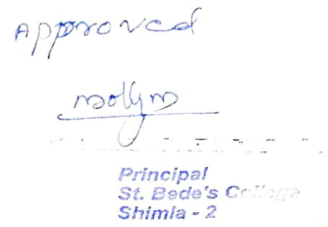 Approved
Principal
St. Bede's College
Shimla - 2